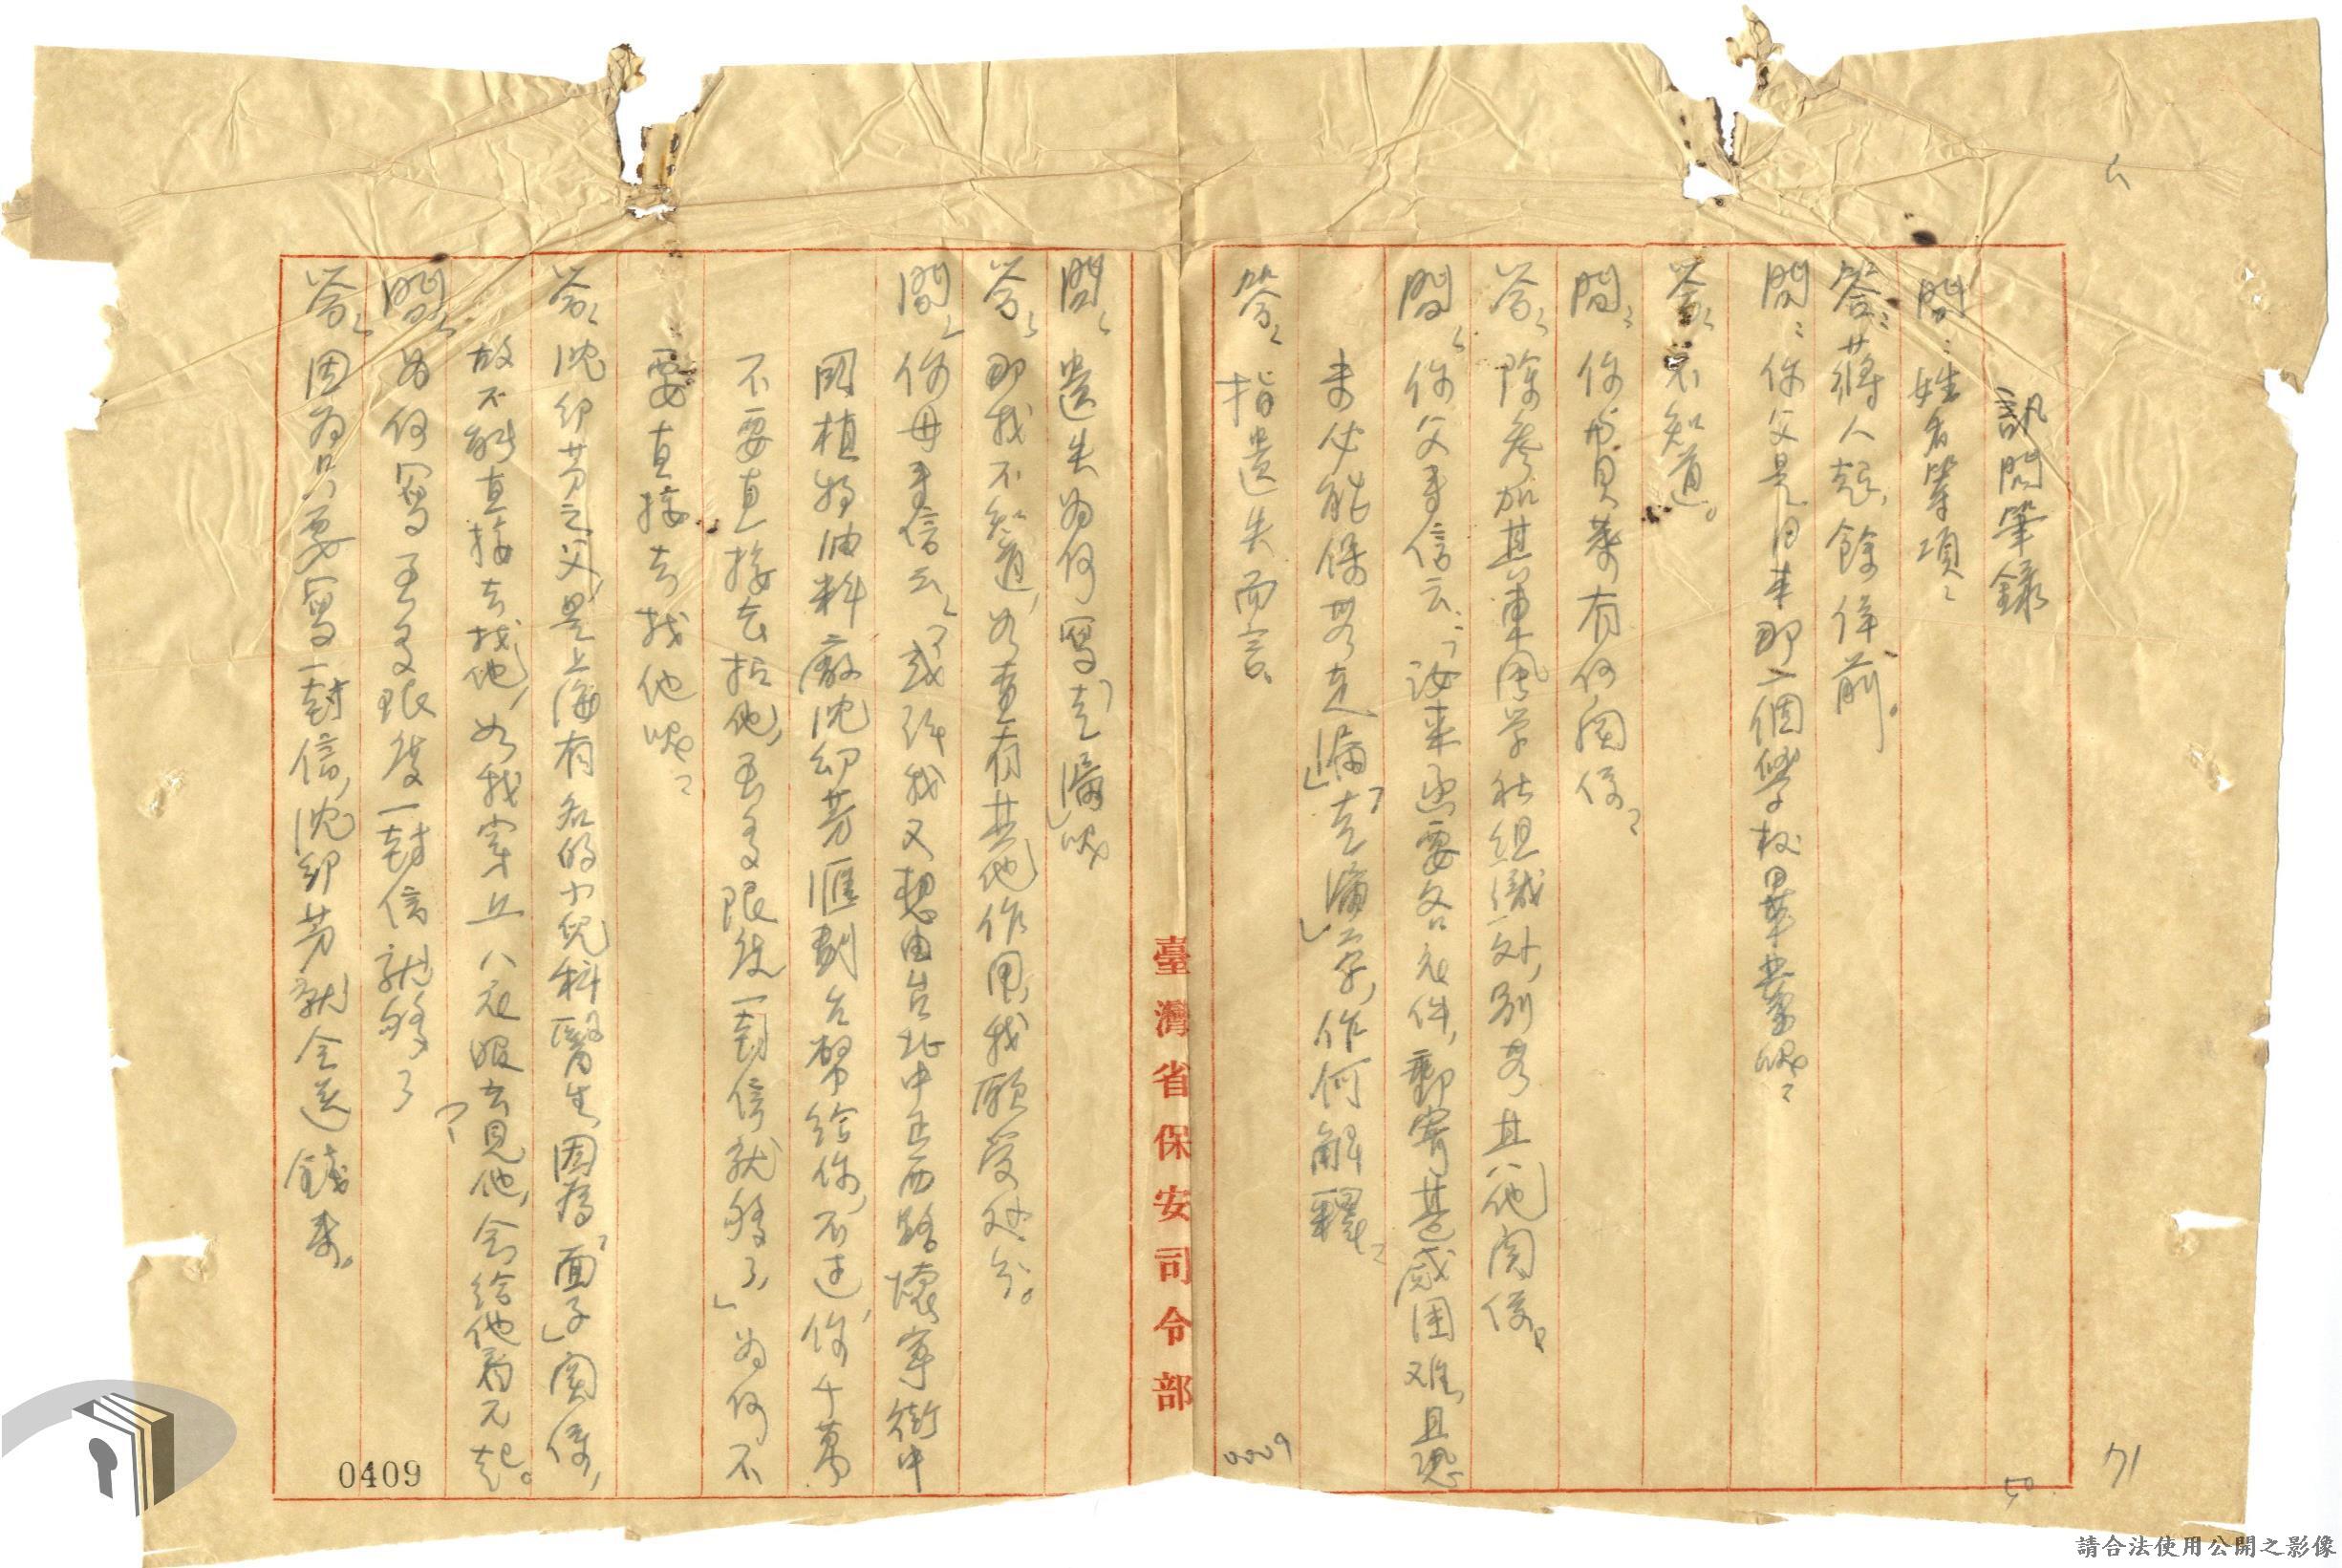 訊問筆錄
問：姓名等項？
答：蔣人起，餘俱前。
問：你父是日本那一個學校畢業呢？
答：不知道。
問：你與貝 有何關係？
答：除參加其東風学社組織外，別 其他関係。
問：你父來信云：「汝來函要各元件，郵寄甚感困难，且恐
未必能保其走漏」「走漏」字，作何解釋？
答：指遺失而言。
問：遺失為何寫「走漏」呢
答：那我不知道，如查有其他作用，我願受处分。
問：你母來信云：「或許我又想由台北中正西路懷寧街中
國植物油料廠沈 芳匯劃台幣給你，不过，你千萬
不要直接去找他，至多限度一封信就够了，」為何不
要直接去找他呢？
答：沈 芳之父，是上海有名的小兒科醫生，因為「面子」関係，
故不能直接去找他，如我穿丘八 服去見他，会給他看不起。
問：為何寫至多限度一封信就够了？
答：因為只要寫一封信，沈 芳就会送錢來。
臺灣省保安司令部
0009
50
71
0409
請合法使用公開之影像